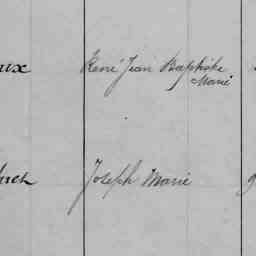 René Jean Baptiste
Marie
Joseph Marie